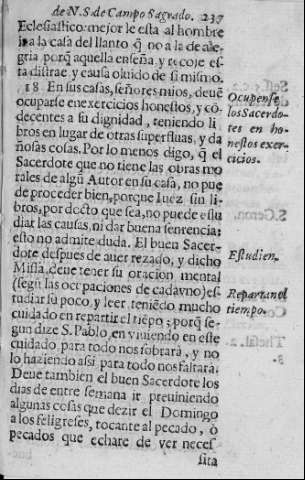 de N.S. de Campo Sagrado. 237
Eclesiastico: mejor le està al hombre
ir a la casa del llanto q̃ no a la de ale-
gria porq̃ aquella enseña y recoje es-
ta distrae, y causa oluido de si mismo.
18 En sus casas, señores mios, deuẽ
ocuparse en exercicios honestos, y cõ-
decentes a su dignidad, teniendo li
bros en lugar de otras superfluas, y da
ñosas cosas. Por lo menos digo, q̃ el
Sacerdote que no tiene las obras mo
rales de algũ Autor en su casa, no pue
de proceder bien, porque Iuez sin li-
bros, por docto que sea, no puede estu
diar las causas, ni dar buena sentencia:
esto no admite duda. El buen Sacer-
dote despues de auer rezado, y dicho
Missa, deue tener su oracion mental
(segũ las occpaciones de cadavno) es-
tudiar su poco, y leer, teniẽdo mucho
cuidado en repartir el tiẽpo; porq̃ se-
gun dize S. Pablo, en viuiendo en este
cuidado para todo nos sobrarà, y no
lo haziendo assi para todo nos faltarà.
Deue tambien el buen Sacerdote los
dias de entre semana ir preuiniendo
algunas cosas que dezir el Domingo
a los feligreses, tocante al pecado, ò
pecados que echare de ver neces-
sita
Ocupense
los Sacerdo-
tes en ho-
nestos exer-
cicios.
Estudien,
Repartan el
tiempo.